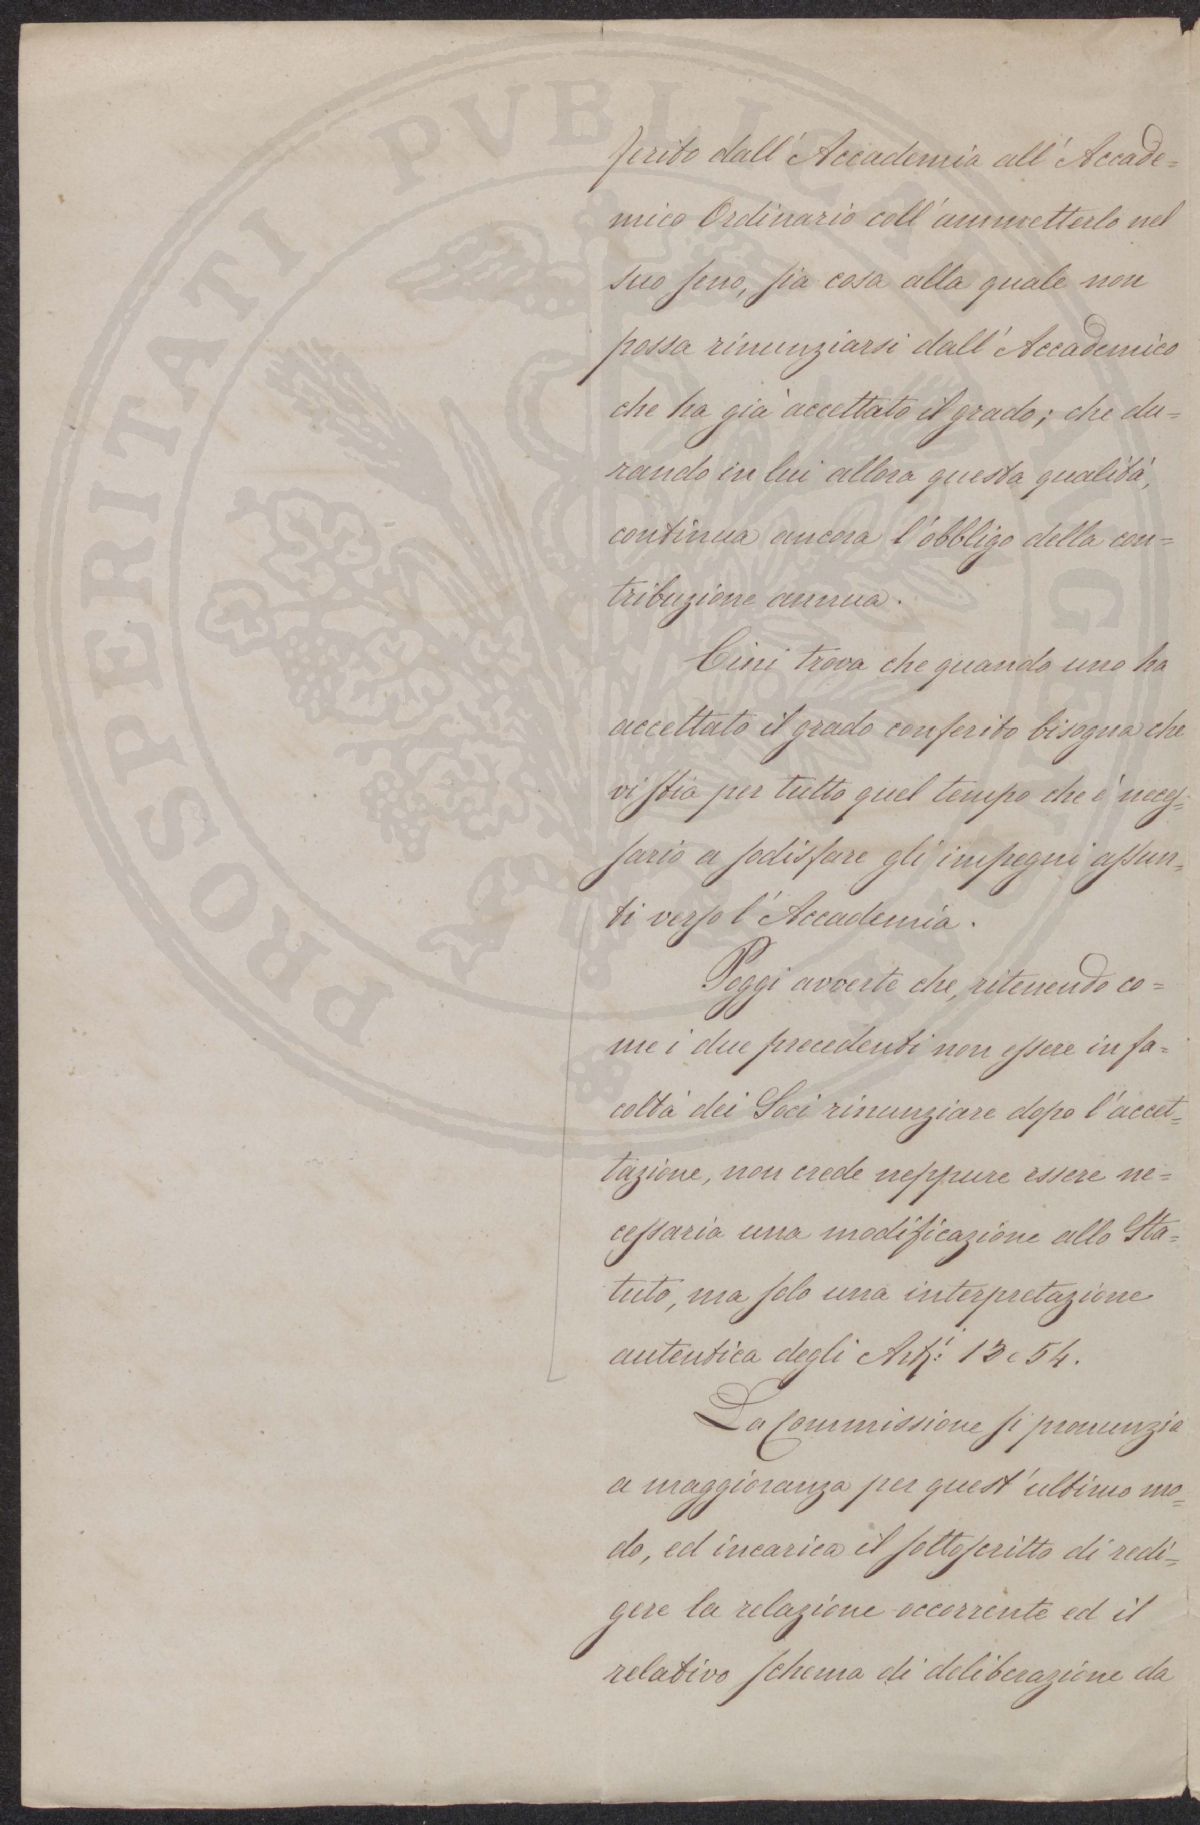 ferito dall'Accademia all'Accade=
mico Ordinario coll'ammetterlo nel
suo seno, sia cosa alla quale non
possa rinunziarsi dall'Accademico
che ha già accettato il grado; che du=
rando in lui allora questa qualità,
continua ancora l'obbligo della con=
tribuzione annua.
Cini trova che quando uno ha
accettato il grado conferito bisogna che
vi stia per tutto quel tempo che è neces=
sario a sodisfare gli impegni assun=
ti verso l'Accademia.
Poggi avverte che, ritenendo co=
me i due precedenti non essere in fa=
coltà dei Soci rinunziare dopo l'accet=
tazione, non crede neppure essere ne=
cessaria una modificazione allo Sta=
tuto, ma solo una interpretazione
autentica degli Arti: 13 e 54.
La Commissione si pronunzia
a maggioranza per quest'ultimo mo=
do, ed incarica il sottoscritto di redi=
gere la relazione occorrente ed il
relativo schema di deliberazione da
PROSPERITATI PUBLICAE AUGENDAE